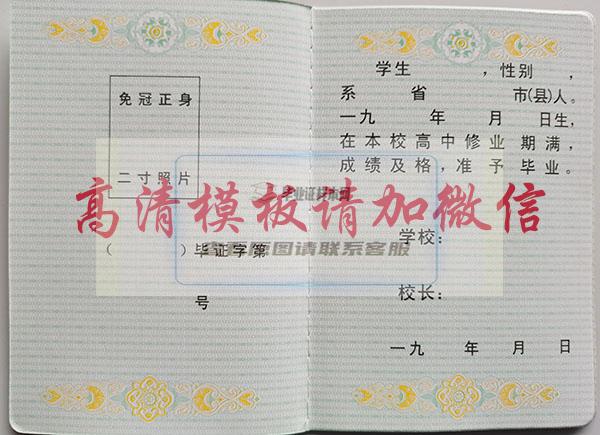 免冠正身
二寸照片
（ ）毕证字第
号
学生 ，性别 ，
系 省 市(县)人。
一九 年 月 日生，
在本校高中修业 期满，
成绩及格，准 予 毕业。
学校：
校长：
一九 年 月 日
高清模板请加微信
毕业证样本网
图请联系客服